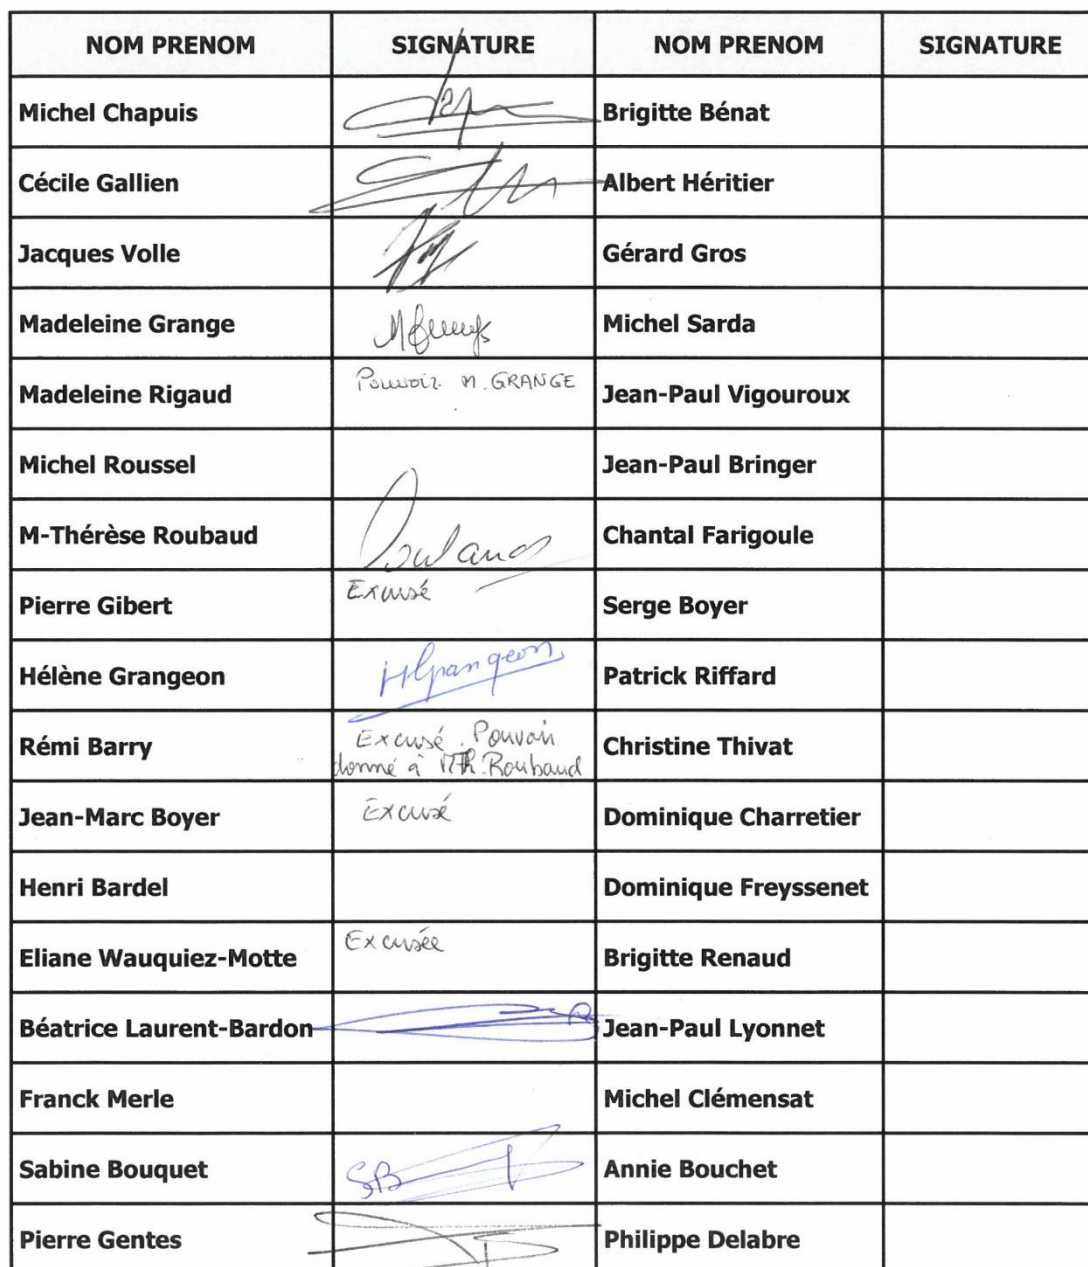 NOM PRENOM SIGNATURE NOM PRENOM SIGNATURE
Michel Chapuis Brigitte Bénat
Cécile Gallien Albert Héritier
Jacques Volle Gérard Gros
Madeleine Grange Michel Sarda
Madeleine Rigaud Pouvoir M. GRANGE Jean-Paul Vigouroux
Michel Roussel Jean-Paul Bringer
M-Thérèse Roubaud Chantal Farigoule
Pierre Gibert Excusé Serge Boyer
Hélène Grangeon HGrangeon Patrick Riffard
Rémi Barry Excusé. Pouvoir Christine Thivat
donné à MTh. Roubaud
Jean-Marc Boyer Excusé Dominique Charretier
Henri Bardel Dominique Freyssenet
Eliane Wauquiez-Motte Excusée Brigitte Renaud
Béatrice Laurent-Bardon Jean-Paul Lyonnet
Franck Merle Michel Clémensat
Sabine Bouquet SB Annie Bouchet
Pierre Gentes Philippe Delabre